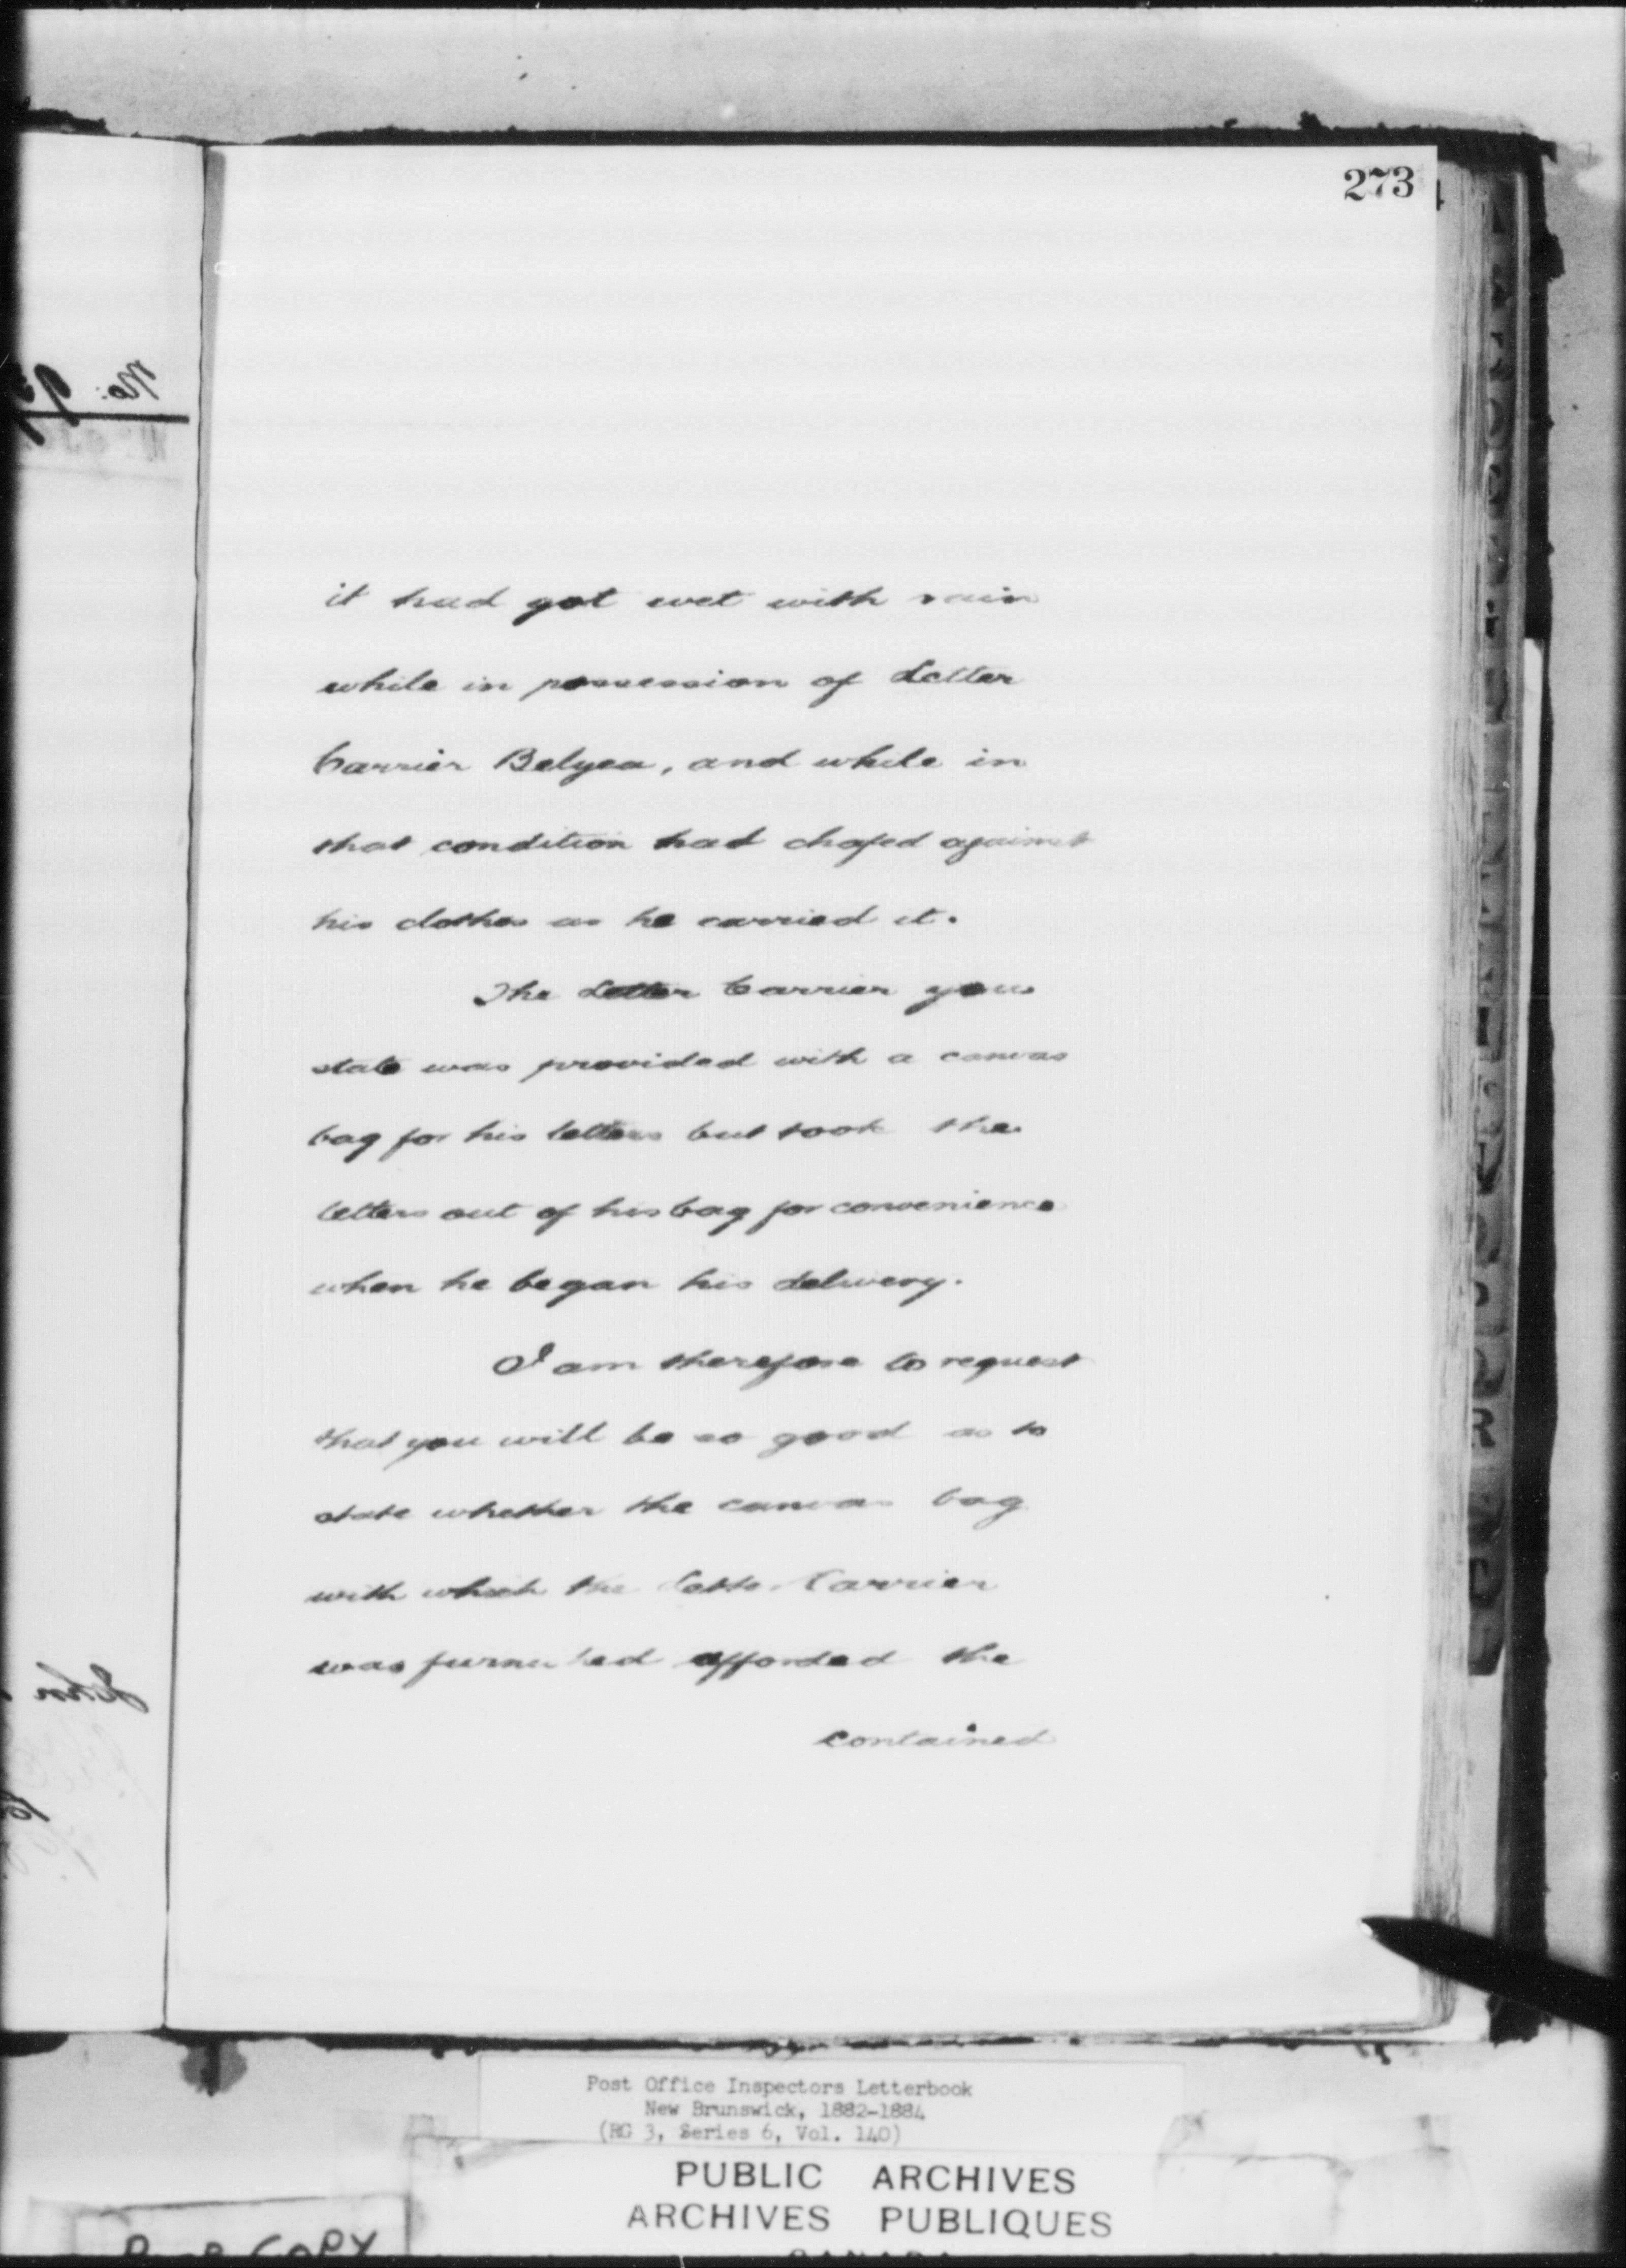 273
No:
it had got wet with rain
while in possession of Letter
Carrier Belyea, and while in
that condition had chafed against
his clothes as he carried it.
The Letter Carrier you
state was provided with a canvas
bag for his letters but took the
letters out of his bag for convenience
when he began his delivery.
I am therefore to request
that you will be so good as to
state whether the canvas bag
with which the Letter Carrier
was furnished afforded the
contained
John
Post Office Inspectors Letterbook
New Brunswick, 1882-1884
(RG 3, Series 6, Vol. 140)
PUBLIC ARCHIVES
ARCHIVES PUBLIQUES
CANADA
COPY